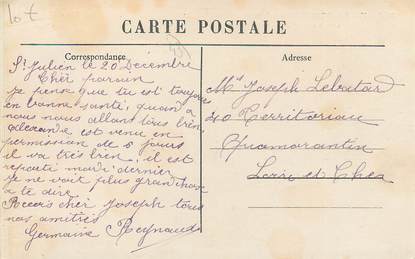 CARTE POSTALE
Correspondance
Adresse
St Julien le 20 Décembre
Cher parrain
je pense que tu est toujours
en bonne santé, quand a
nous nous allons tous bien
est venu en
permission de 6 jours
il va très bien, il est
reparti mardi dernier
je ne voit plus grand chose
a te dire
Recois cher Joseph tous
nos amitiés
Germaine Reynaud
Mr Joseph Lebatard
40 Territoriau
Romorantin
Loire et Cher